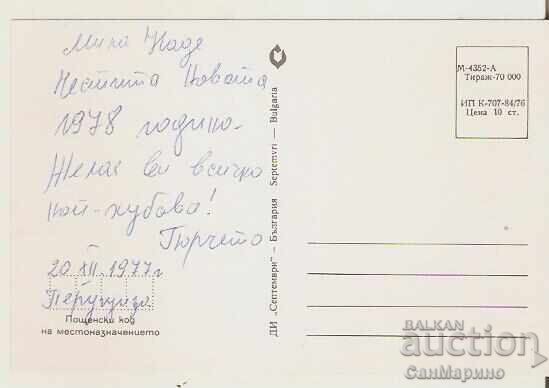 Мила Наде
Честита Новата
1978 година.
Желая ви всичко
най-хубаво!
Гюрчето
20 XII. 1977 г
Пощенски код
на местоназначението
ДИ „Септември" – България Septemvri — Bulgaria
М-4352-А
Тираж-70 000
ИП К-707-84/76
Цена 10 ст.
BALKAN
auction
СанМарино